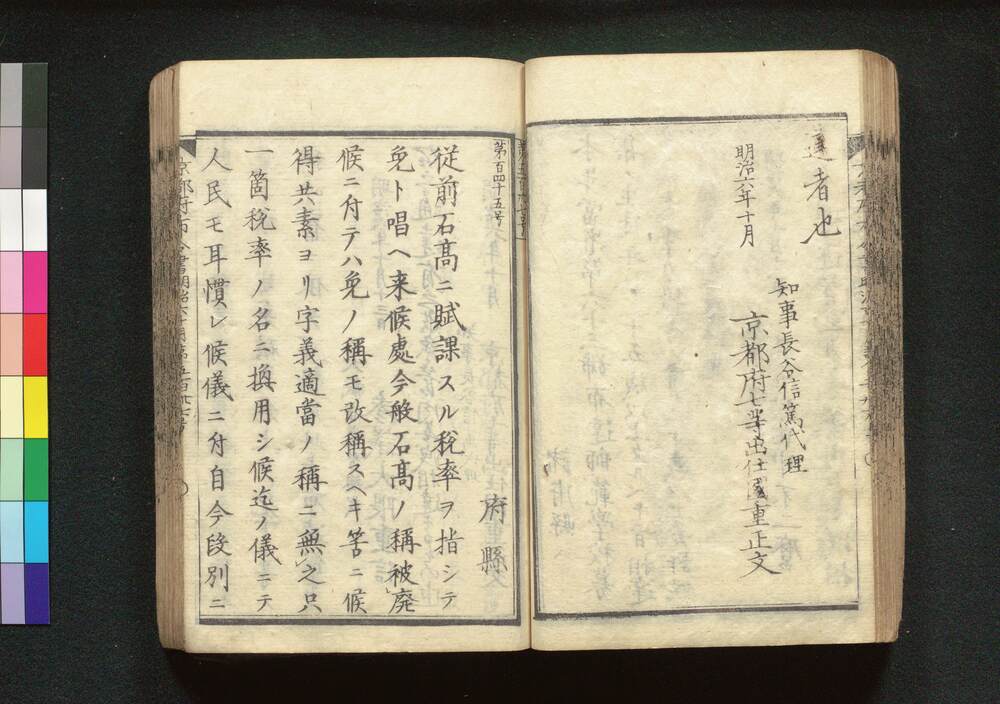 達者也
明治六年十月
知事長谷信篤代理
京都府七等出仕國重正文
第百四十五号
府縣
従前石髙ニ賦課スル税率ヲ指シテ
免ト唱ヘ来候處今般石髙ノ稱被廃
候ニ付テハ免ノ稱モ改稱スヘキ筈ニ候
得共素ヨリ字義適當ノ稱ニ無之只
一箇税率ノ名ニ換用シ候迄ノ儀ニテ
人民モ耳慣レ候儀ニ付自今段別ニ